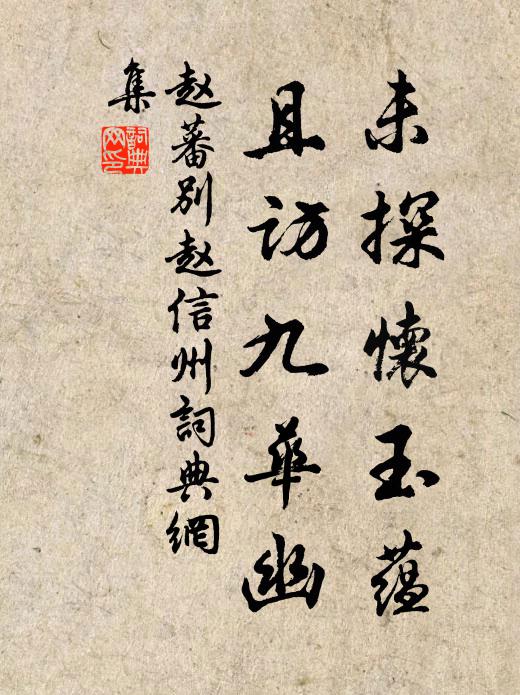 未探懷玉蘊
且訪九華幽
赵蕃别赵信州詞典網
集
詞典网印